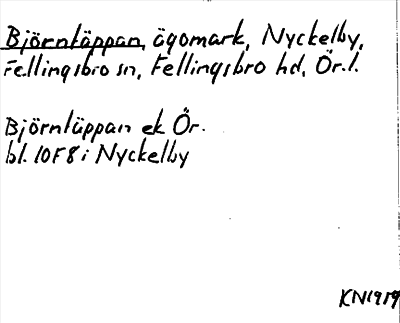 Björntäppan, ägomark, Nyckelby,
Fellingsbro sn, Fellingsbro hd, Ör. l.
Björntäppan ek Ör.
bl. 10F8i Nyckelby
KN1979